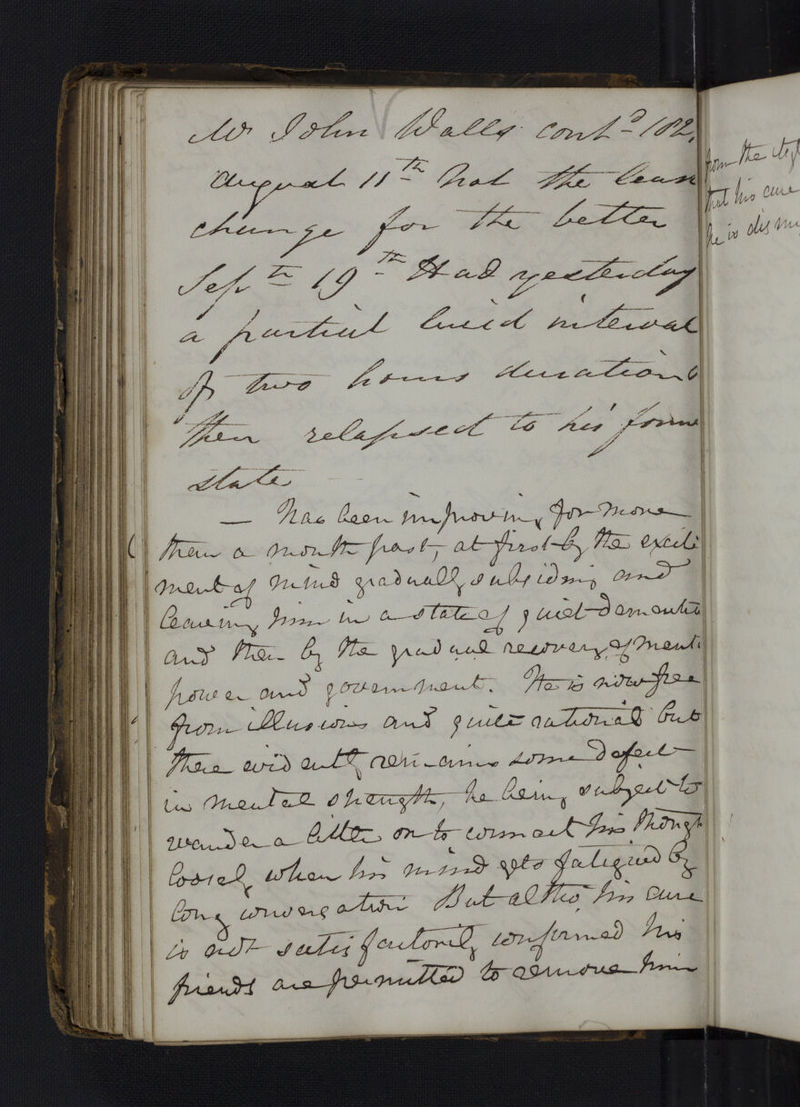 Mr John Walls contd 182
August 11th Not the least
change for the better
Septr 19th Had yesterday
a partial lucid interval
of two hours duration &
then relapsed to his forme
state
— Has been improving for more
than a month past, at first by the excite
ment of mind gradually subsiding and
leaving him in a state of quiet Dementia
and then by the gradual recovery of mental
power and government. He is now free
from illusions and quite rational but
there evidently remains some defect
in mental strength, he being subject to
wander a little or to connect his thought
loosely when his mind gets fatigued by
long conversation But altho' his cure
is not satisfactorily confirmed his
friends are permitted to remove him
from the
that his cure
he is dis